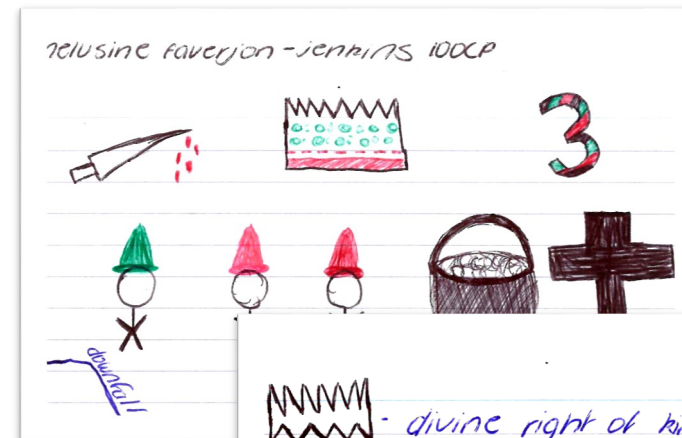 melusine faverjon-jenkins 10DCP
3
downfall
- divine right of